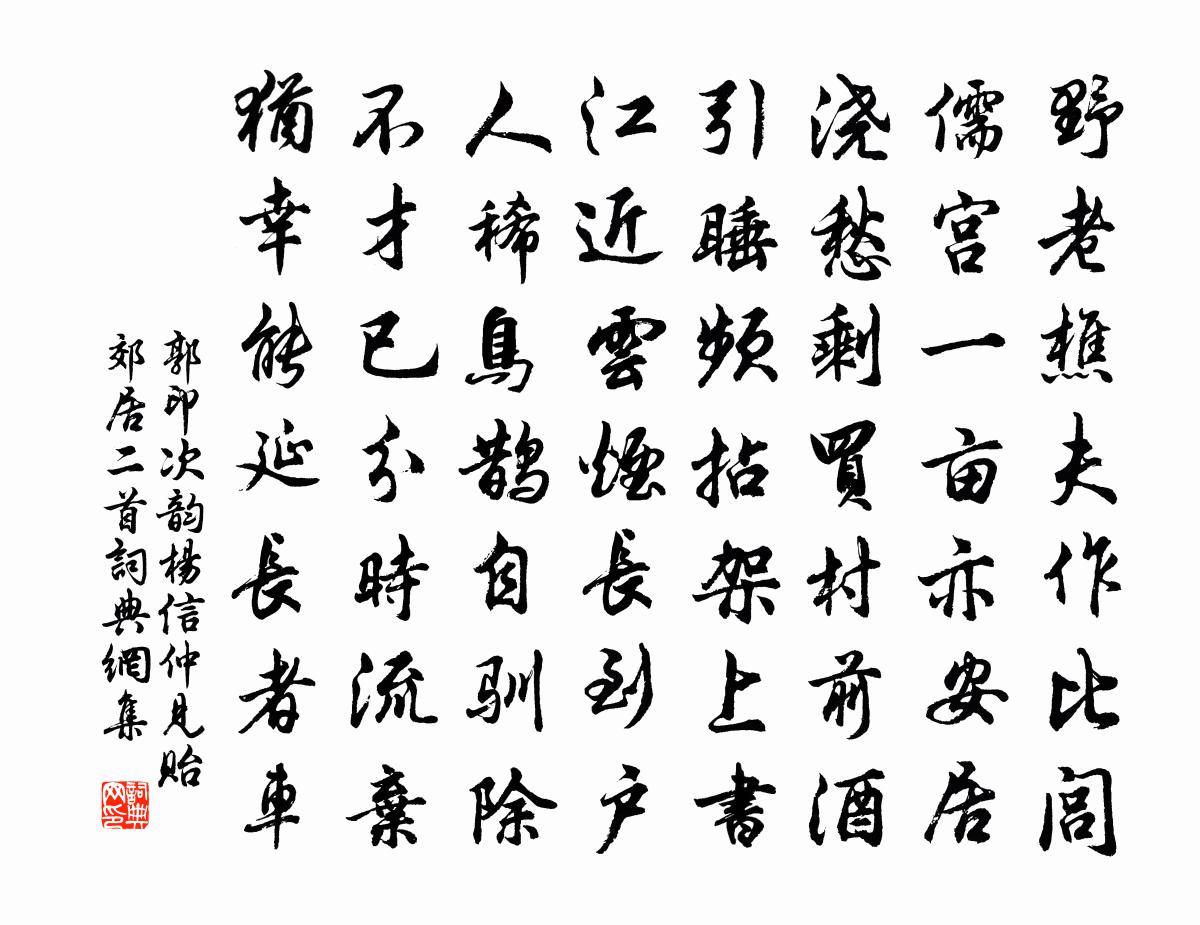 野老樵夫作比閭
儒宫一亩亦安居
浇愁剩買村前酒
引睡頻拈架上書
江近雲煙長到户
人稀鳥鹊自驯除
不才已分時流棄
猶幸能延長者車
郭印次韵楊信仲見貽
郊居二首詞典網集
詞典网印